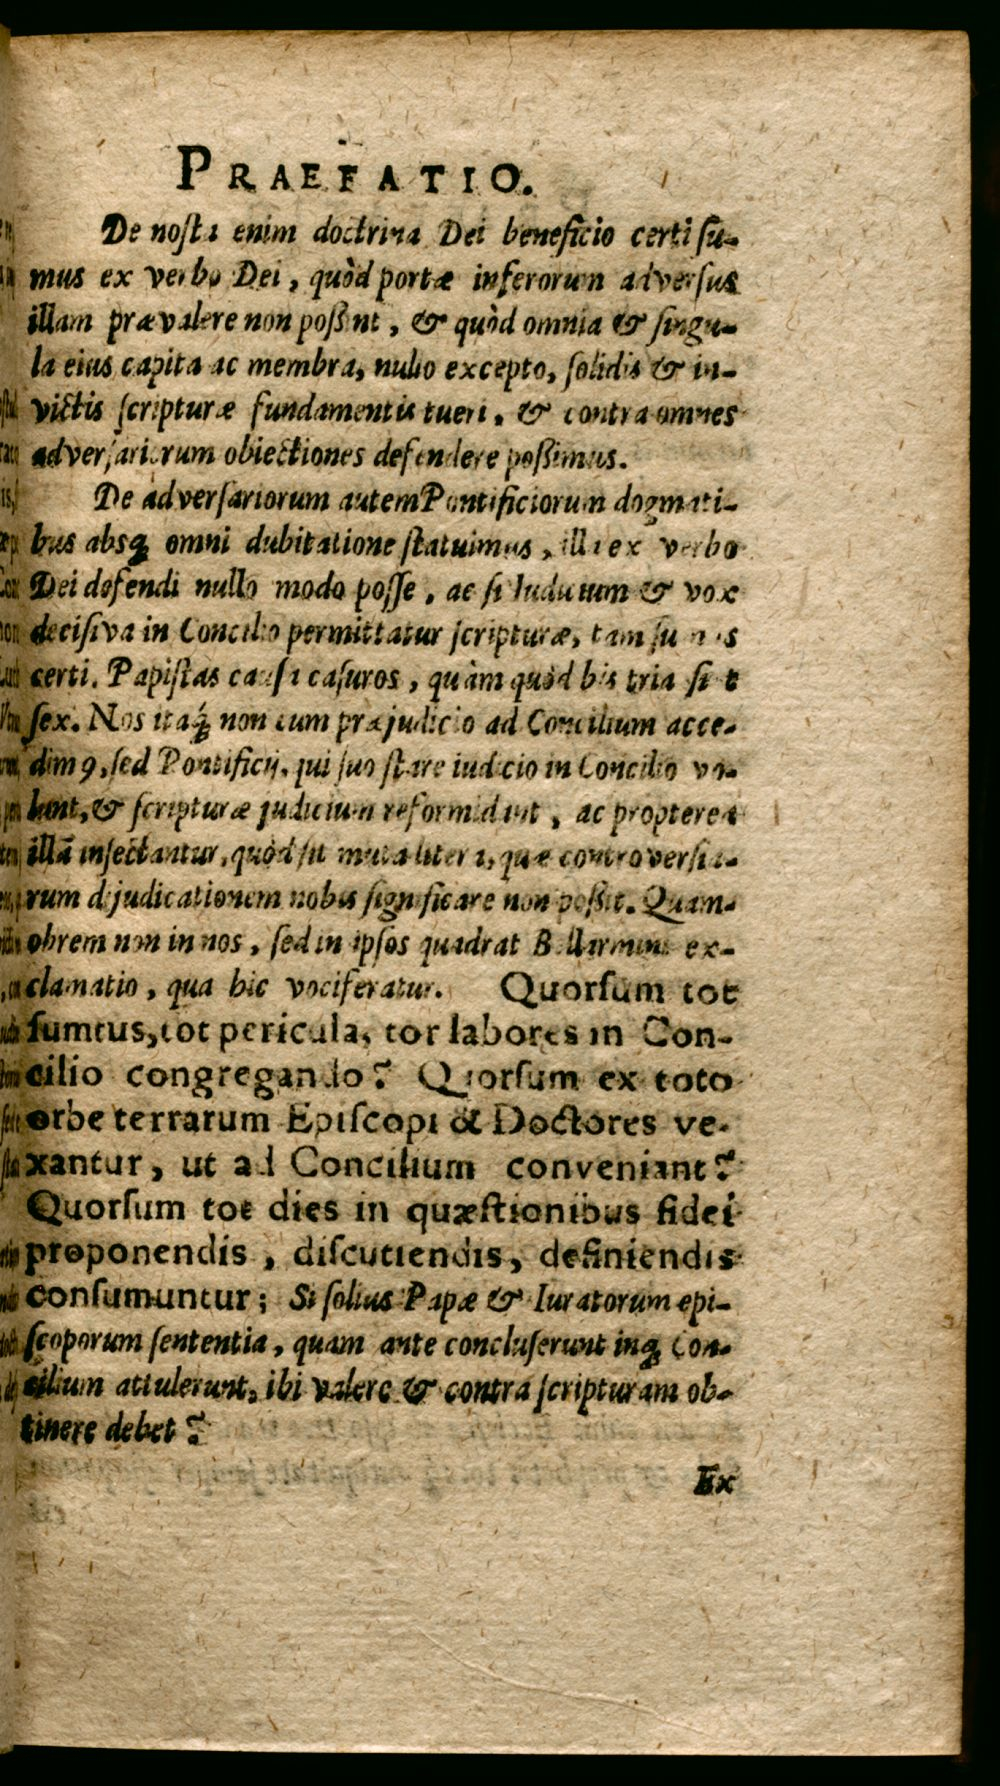 PRAEFATIO.
De nostra enim doctrina Dei beneficio certi ſu-
mus ex verbo Dei, quòd portæ inferorum adverſus
illam prævalere non poßint, & quòd omnia & ſingu-
la eius capita ac membra, nullo excepto, ſolidis & in-
victis ſcripturæ fundamentis tueri, & contra omnes
adverſariorum obiectiones defendere poßimus.
De adverſariorum autem Pontificiorum dogmati-
bus absq́ omni dubitatione ſtatuimus, illa ex verbo
Dei defendi nullo modo poſſe, ac ſi Iudicium & vox
deciſiva in Concilio permittatur ſcripturæ, tam ſumus
certi, Papiſtas cauſa caſuros, quàm quòd bis tria ſint
ſex. Nos itaq́ non cum præjudicio ad Concilium acce-
dimꝰ, ſed Pontificij, qui ſuo ſtare iudicio in Concilio vo-
lunt, & ſcripturæ judicium reformidant, ac propterea
illã inſectantur, quòd ſit muta litera, quæ controverſia-
rum dijudicationem nobis ſignificare non poßit. Quam-
obrem non in nos, ſed in ipſos quadrat Bellarmini ex-
clamatio, qua hic vociferatur. Quorſum tot
ſumtus, tot pericula, tot labores in Con-
cilio congregando? Quorſum ex toto
orbe terrarum Epiſcopi & Doctores ve-
xantur, ut ad Concilium conveniant?
Quorſum tot dies in quæſtionibus fidei
proponendis, diſcutiendis, definiendis
conſumuntur; Si ſolius Papæ & Iuratorum epi-
ſcoporum ſententia, quam ante concluſerunt inq́ Con-
cilium attulerunt, ibi valere & contra ſcripturam ob-
tinere debet?
Ex